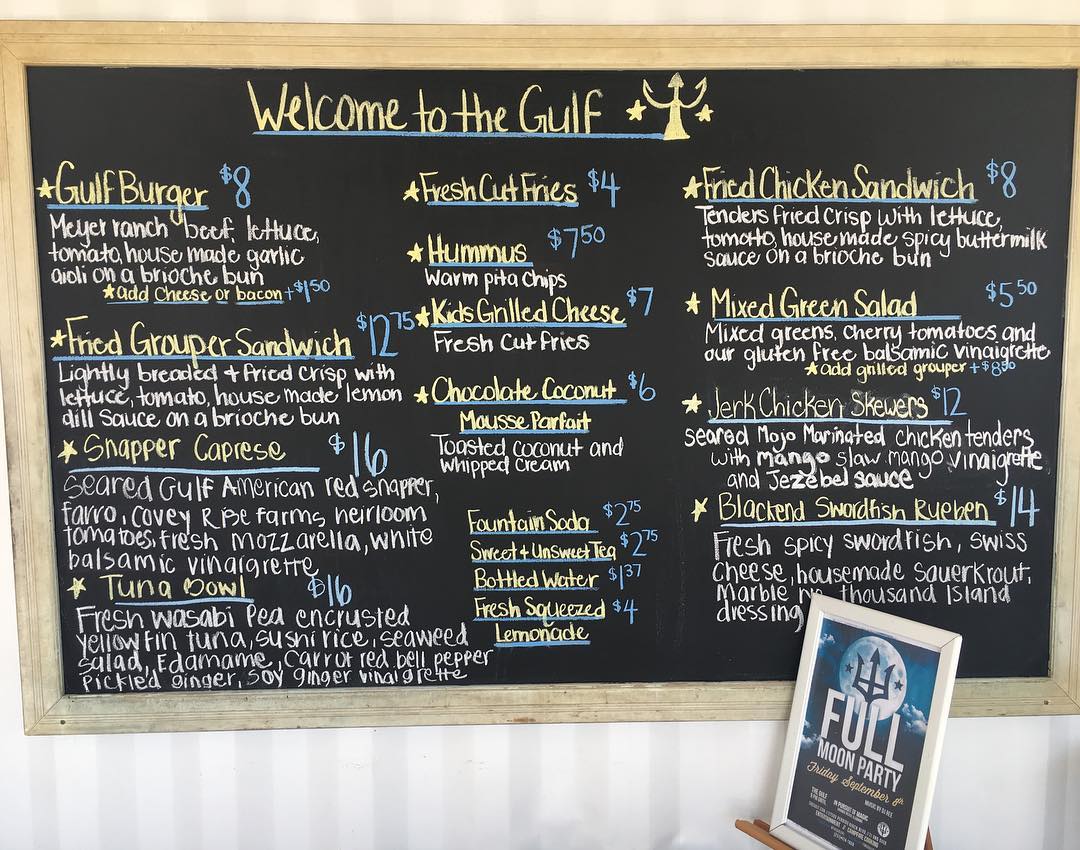 Welcome to the Gulf
Gulf Burger $8
Meyer ranch beef, lettuce,
tomato, house made garlic
aioli on a brioche bun
add Cheese or bacon +$1.50
Fried Grouper Sandwich $12.75
Lightly breaded + fried crisp with
lettuce, tomato, house made lemon
dill sauce on a brioche bun
Snapper Caprese $16
seared Gulf American red snapper,
farro, covey Rise farms heirloom
tomatoes, fresh mozzarella, white
balsamic vinaigrette
Tuna Bowl $16
Fresh wasabi Pea encrusted
yellow fin tuna, sushi rice, seaweed
salad, Edamame, Carrot red bell pepper
Pickled ginger, Soy ginger vinaigrette
Fresh Cut Fries $4
Hummus $7.50
Warm pita Chips
Kids Grilled Cheese $7
Fresh Cut fries
Chocolate Coconut $6
Mousse Parfait
Toasted coconut and
whipped cream
Fountain Soda $2.75
Sweet + UnSweet Tea $2.75
Bottled Water $1.37
Fresh Squeezed $4
Lemonade
Fried Chicken Sandwich $8
Tenders fried crisp with lettuce,
tomotto, house made spicy buttermilk
sauce on a brioche bun
Mixed Green Salad $5.50
Mixed greens, Cherry tomatoes and
our gluten free balsamic vinaigrette
add grilled grouper +$8.50
Jerk Chicken Skewers $12
seared Mojo Marinated chicken tenders
with mango slaw mango vinaigrette
and Jezebel sauce
Blackend Swordfish Rueben $14
Fresh spicy swordfish, swiss
Cheese, housemade Sauerkrout,
Marble rye thousand Island
dressing
FULL
MOON PARTY
Friday September 8th
THE GULF
IN PURSUIT OF MAGIC
MUSIC BY DJ REE